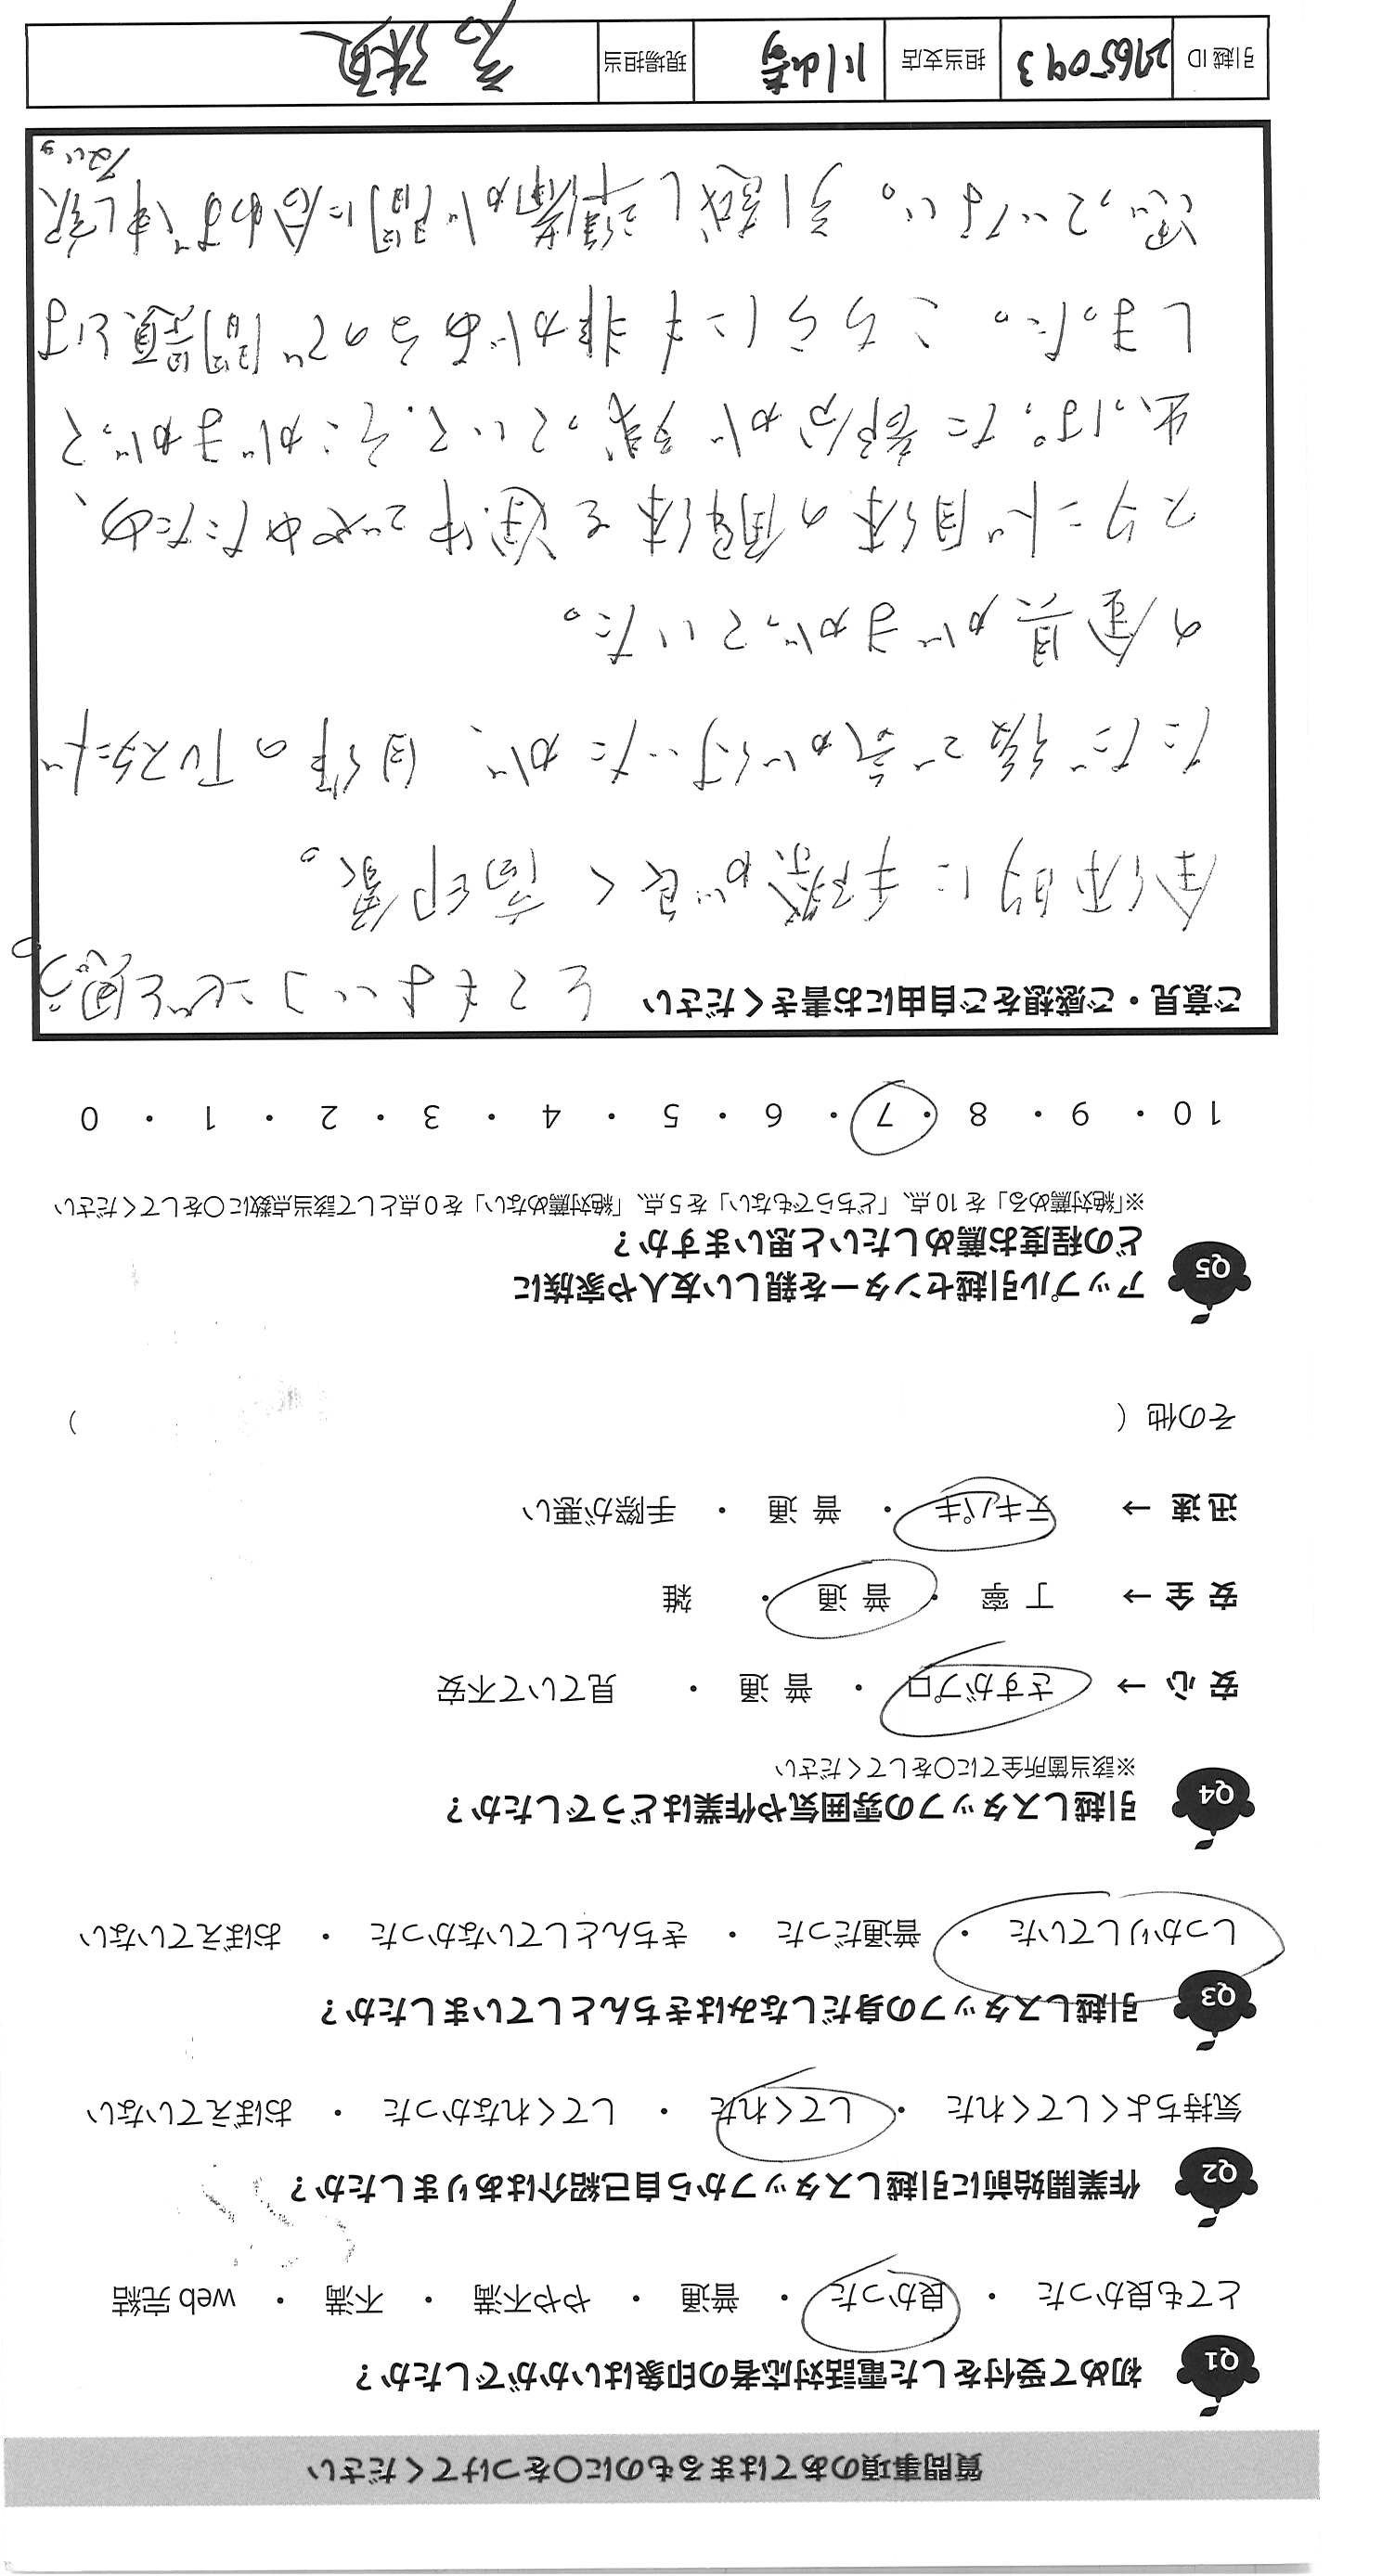 質問事項のあてはまるものに〇をつけてください
Q1 初めて受付をした電話対応者の印象はいかがでしたか？
とても良かった ・ 良かった ・ 普通 ・ やや不満 ・ 不満 ・ web 完結
Q2 作業開始前に引越しスタッフから自己紹介はありましたか？
気持ちよくしてくれた ・ してくれた ・ してくれなかった ・ おぼえていない
Q3 引越しスタッフの身だしなみはきちんとしていましたか？
しっかりしていた ・ 普通だった ・ きちんとしていなかった ・ おぼえていない
Q4 引越しスタッフの雰囲気や作業はどうでしたか？
※該当箇所全てに〇をしてください
安 心 → さすがプロ ・ 普 通 ・ 見ていて不安
安 全 → 丁 寧 ・ 普 通 ・ 雑
迅 速 → テキパキ ・ 普 通 ・ 手際が悪い
その他（ ）
Q5 アップル引越センターを親しい友人や家族に
どの程度お薦めしたいと思いますか？
※「絶対薦める」を 10 点、「どちらでもない」を 5 点、「絶対薦めない」を 0 点として該当点数に〇をしてください
10 ・ 9 ・ 8 ・ 7 ・ 6 ・ 5 ・ 4 ・ 3 ・ 2 ・ 1 ・ 0
ご意見・ご感想をご自由にお書きください とてもよいコンビで
全体的に手際が良く高印象。
ただ後で気が付いたが、自作のTVスタンド
の金具がまがっていた。
スタンド自体の解体を途中でやめたため、
出っぱった部分が残っていて、そこがまがって
しまった。こちらにも非があるので問題とは
思っていない。引越し準備が間に合わず申し訳
ない。
引越 ID 2965093 担当支店 川崎 現場担当